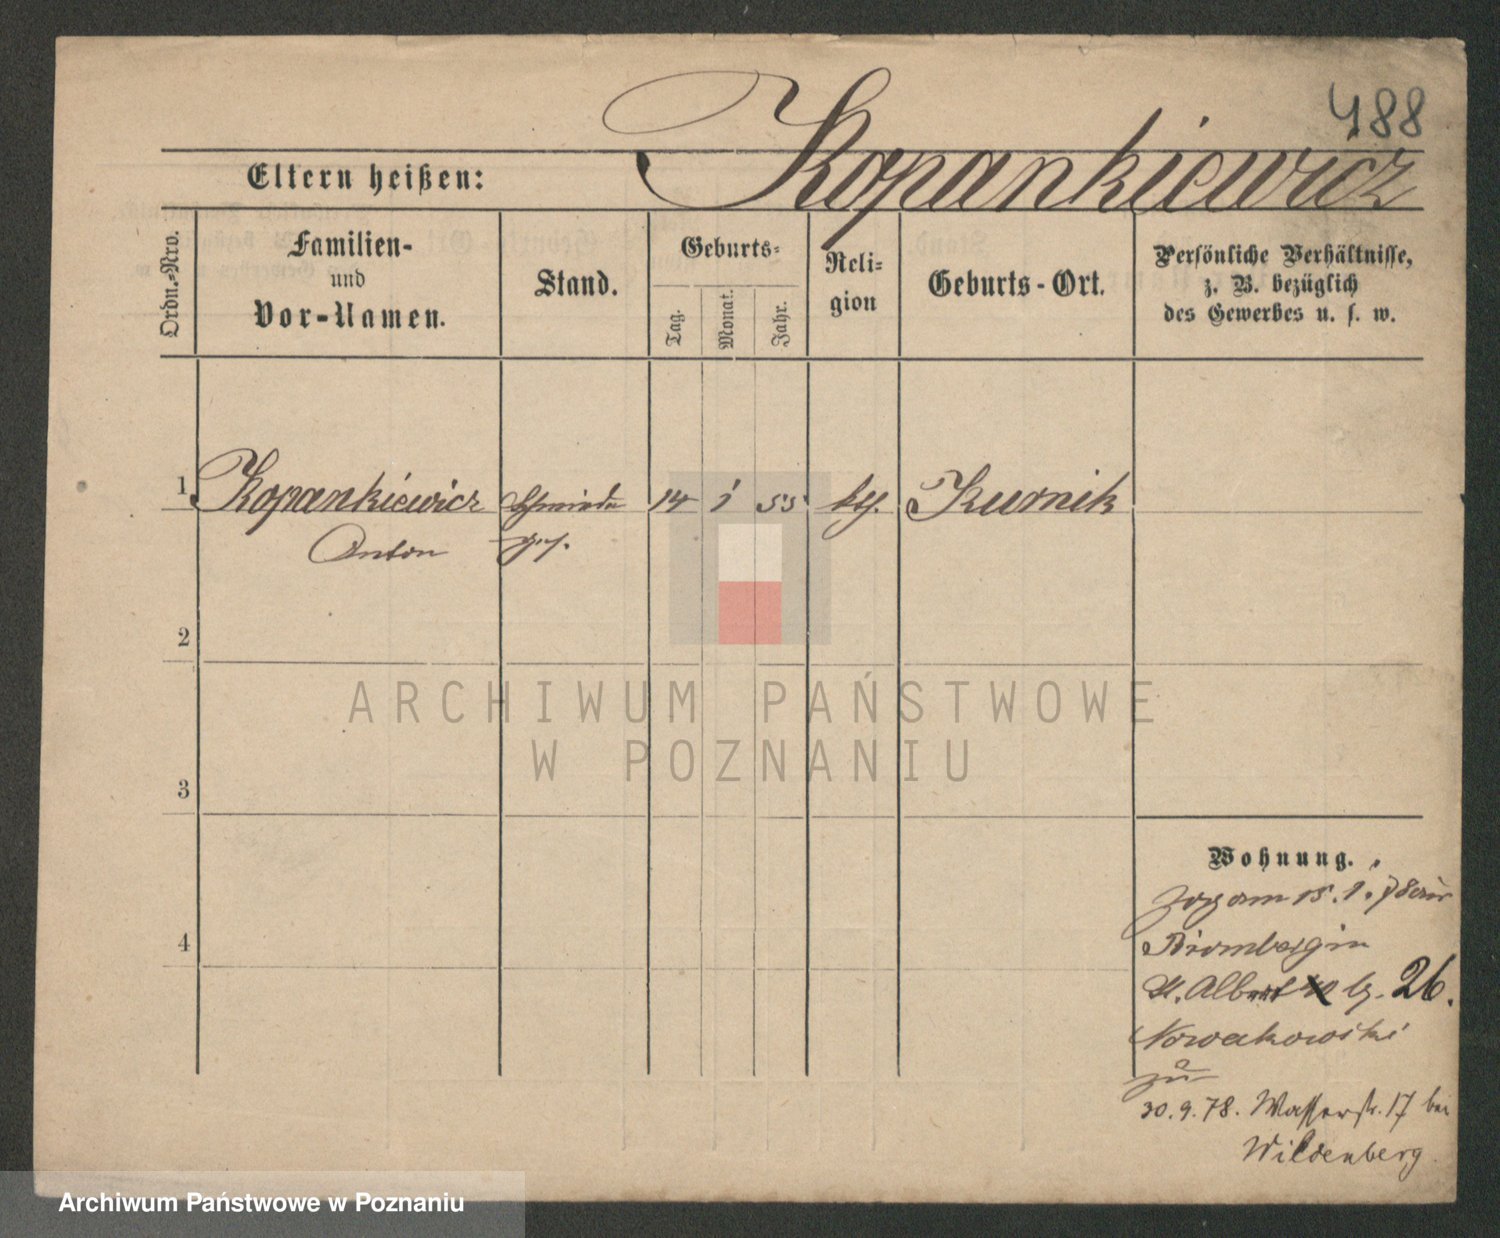 488
Kopankiewicz
Eltern heißen:
Ordn.-Nro.
Familien-
und
Vor-Namen.
Stand.
Geburts-
Tag.
Monat.
Jahr.
Reli-
gion
Geburts-Ort.
Persönliche Verhältnisse,
z. B. bezüglich
des Gewerbes u. s. w.
1 Kopankiewicz 14 1 55 kth. Kurnik
Anton
2
3
4
ARCHIWUM PAŃSTWOWE
W POZNANIU
Wohnung.
zog am 15. 1. 78 aus
Bromberg in
St. Albert 40 b. 26.
Nowakowski
zu
30.9.78. Wasserstr. 17 bei
Wildenberg.
Archiwum Państwowe w Poznaniu